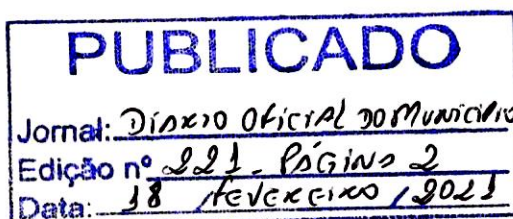 PUBLICADO
Jornal: Diário Oficial do Município
Edição nº 221 - Página 2
Data: 18 / fevereiro / 2021